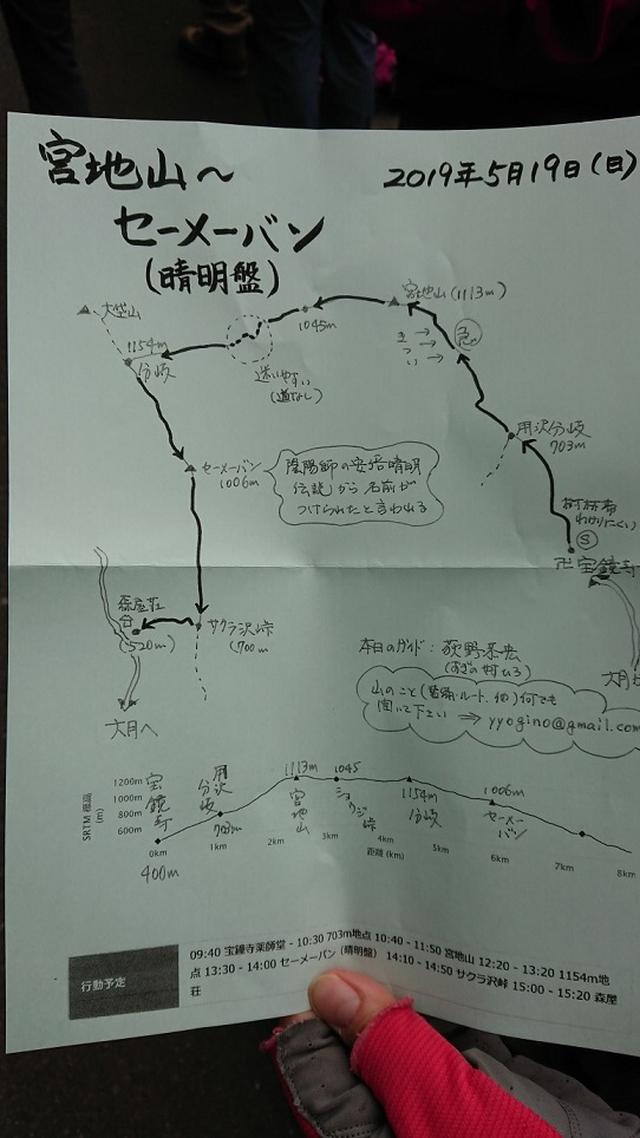 宮地山〜
2019年5月19日(日)
セーメーバン
(晴明盤)
宮地山(1113m)
1045m
急
きつい
1154m
分岐
迷いやすい
(道なし)
用沢分岐
703m
セーメーバン
1006m
陰陽師の安倍晴明
伝説」から名前が
つけられたと言われる
わかりにくい
S
卍宝鏡寺
森屋荘
(520m)
サクラ沢峠
(700m
大月へ
本日のガイド:荻野
山のこと(装備・ルート、他)何でも
聞いて下さい ⇒ yyogino@gmail.com
SRTM 標高
(m)
1200m
1000m
800m
600m
宝鏡寺
用沢分岐
703m
1113m
宮地山
1045
ショウジ峠
1154m
分岐
1006m
セーメーバン
0km
1km
2km
3km
4km
5km
6km
7km
8km
距離 (km)
400m
行動予定
09:40 宝鐘寺薬師堂 - 10:30 703m地点 10:40 - 11:50 宮地山 12:20 - 13:20 1154m地
点 13:30 - 14:00 セーメーバン (晴明盤) 14:10 - 14:50 サクラ沢峠 15:00 - 15:20 森屋
荘